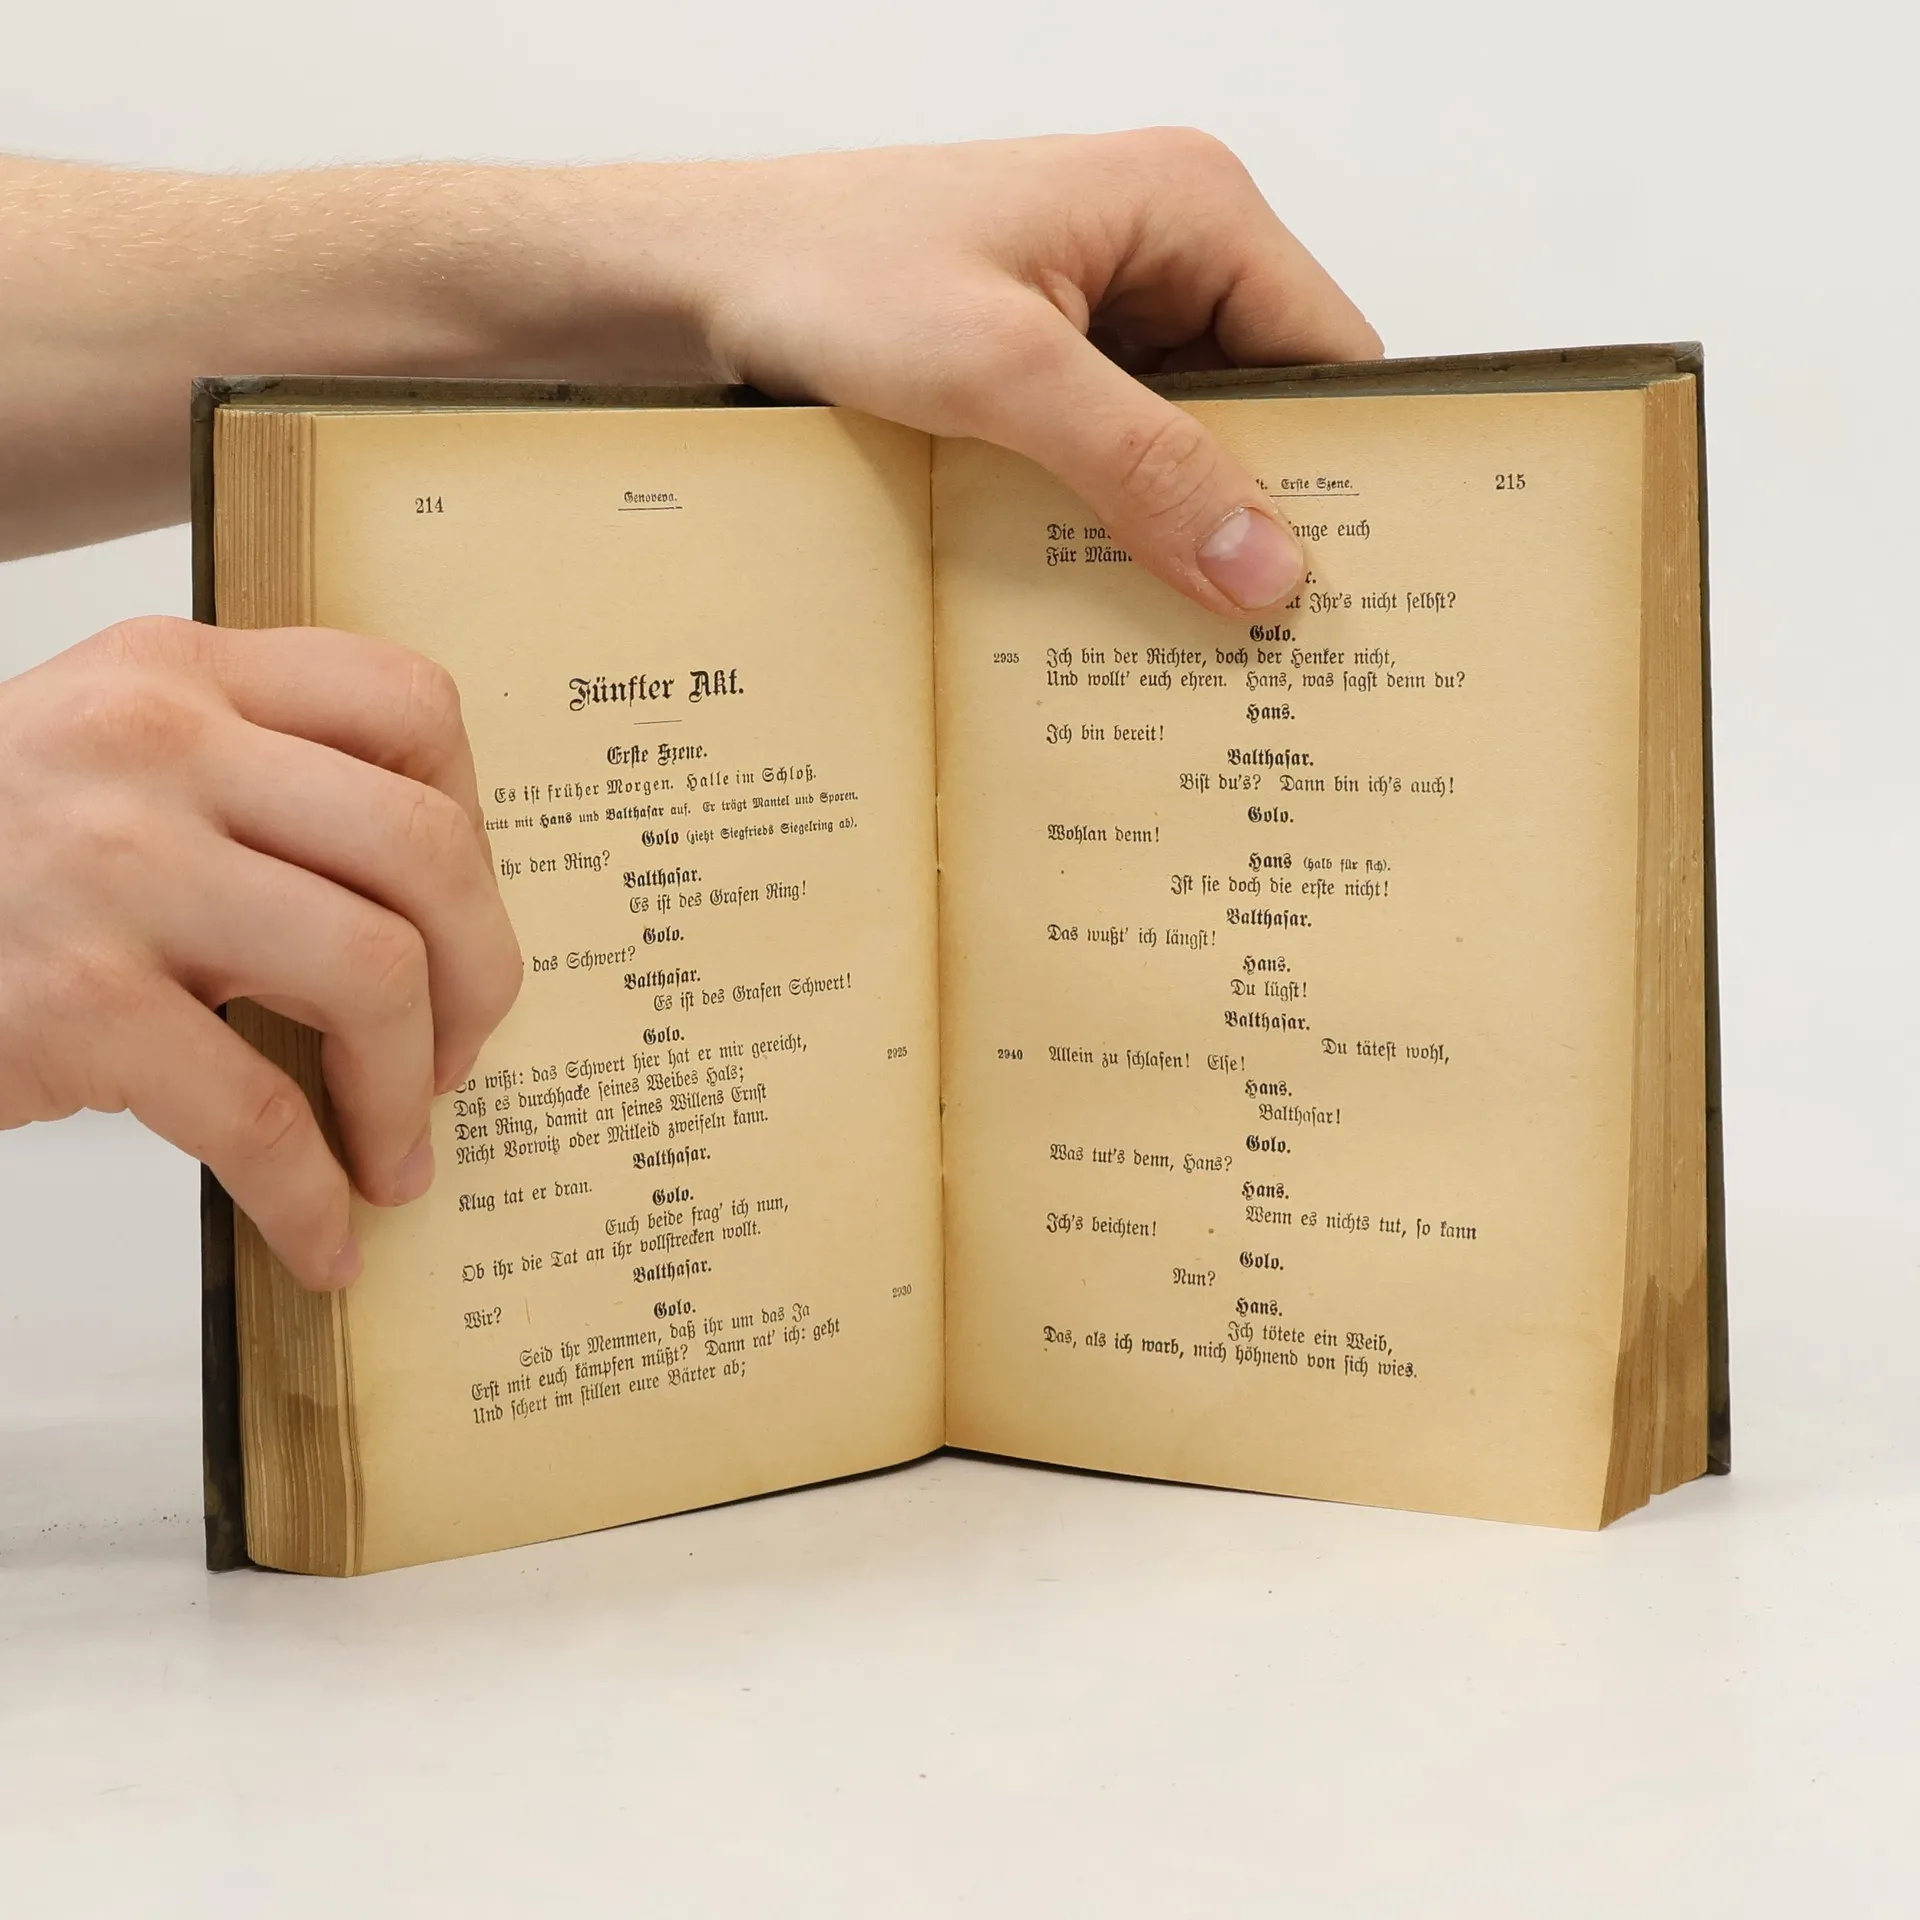 214
Genoveva.
Fünfter Akt.
Erste Szene.
Es ist früher Morgen. Halle im Schloß.
tritt mit Hans und Balthasar auf. Er trägt Mantel und Sporen.
Golo (zieht Siegfrieds Siegelring ab).
ihr den Ring?
Balthasar.
Es ist des Grafen Ring!
Golo.
das Schwert?
Balthasar.
Es ist des Grafen Schwert!
Golo.
So wißt: das Schwert hier hat er mir gereicht,
2925
Daß es durchhacke seines Weibes Hals;
Den Ring, damit an seines Willens Ernst
Nicht Vorwitz oder Mitleid zweifeln kann.
Balthasar.
Klug tat er dran.
Golo.
Euch beide frag' ich nun,
Ob ihr die Tat an ihr vollstrecken wollt.
Balthasar.
Wir?
2930
Golo.
Seid ihr Memmen, daß ihr um das Ja
Erst mit euch kämpfen müßt? Dann rat' ich: geht
Und schert im stillen eure Bärter ab;
Erste Szene.
215
Die euch
Für
Ihr's nicht selbst?
Golo.
2935 Ich bin der Richter, doch der Henker nicht,
Und wollt' euch ehren. Hans, was sagst denn du?
Hans.
Ich bin bereit!
Balthasar.
Bist du's? Dann bin ich's auch!
Golo.
Wohlan denn!
Hans (halb für sich).
Ist sie doch die erste nicht!
Balthasar.
Das wußt' ich längst!
Hans.
Du lügst!
Balthasar.
Du tätest wohl,
2940 Allein zu schlafen! Else!
Hans.
Balthasar!
Golo.
Was tut's denn, Hans?
Hans.
Wenn es nichts tut, so kann
Ich's beichten!
Golo.
Nun?
Hans.
Ich tötete ein Weib,
Das, als ich warb, mich höhnend von sich wies.